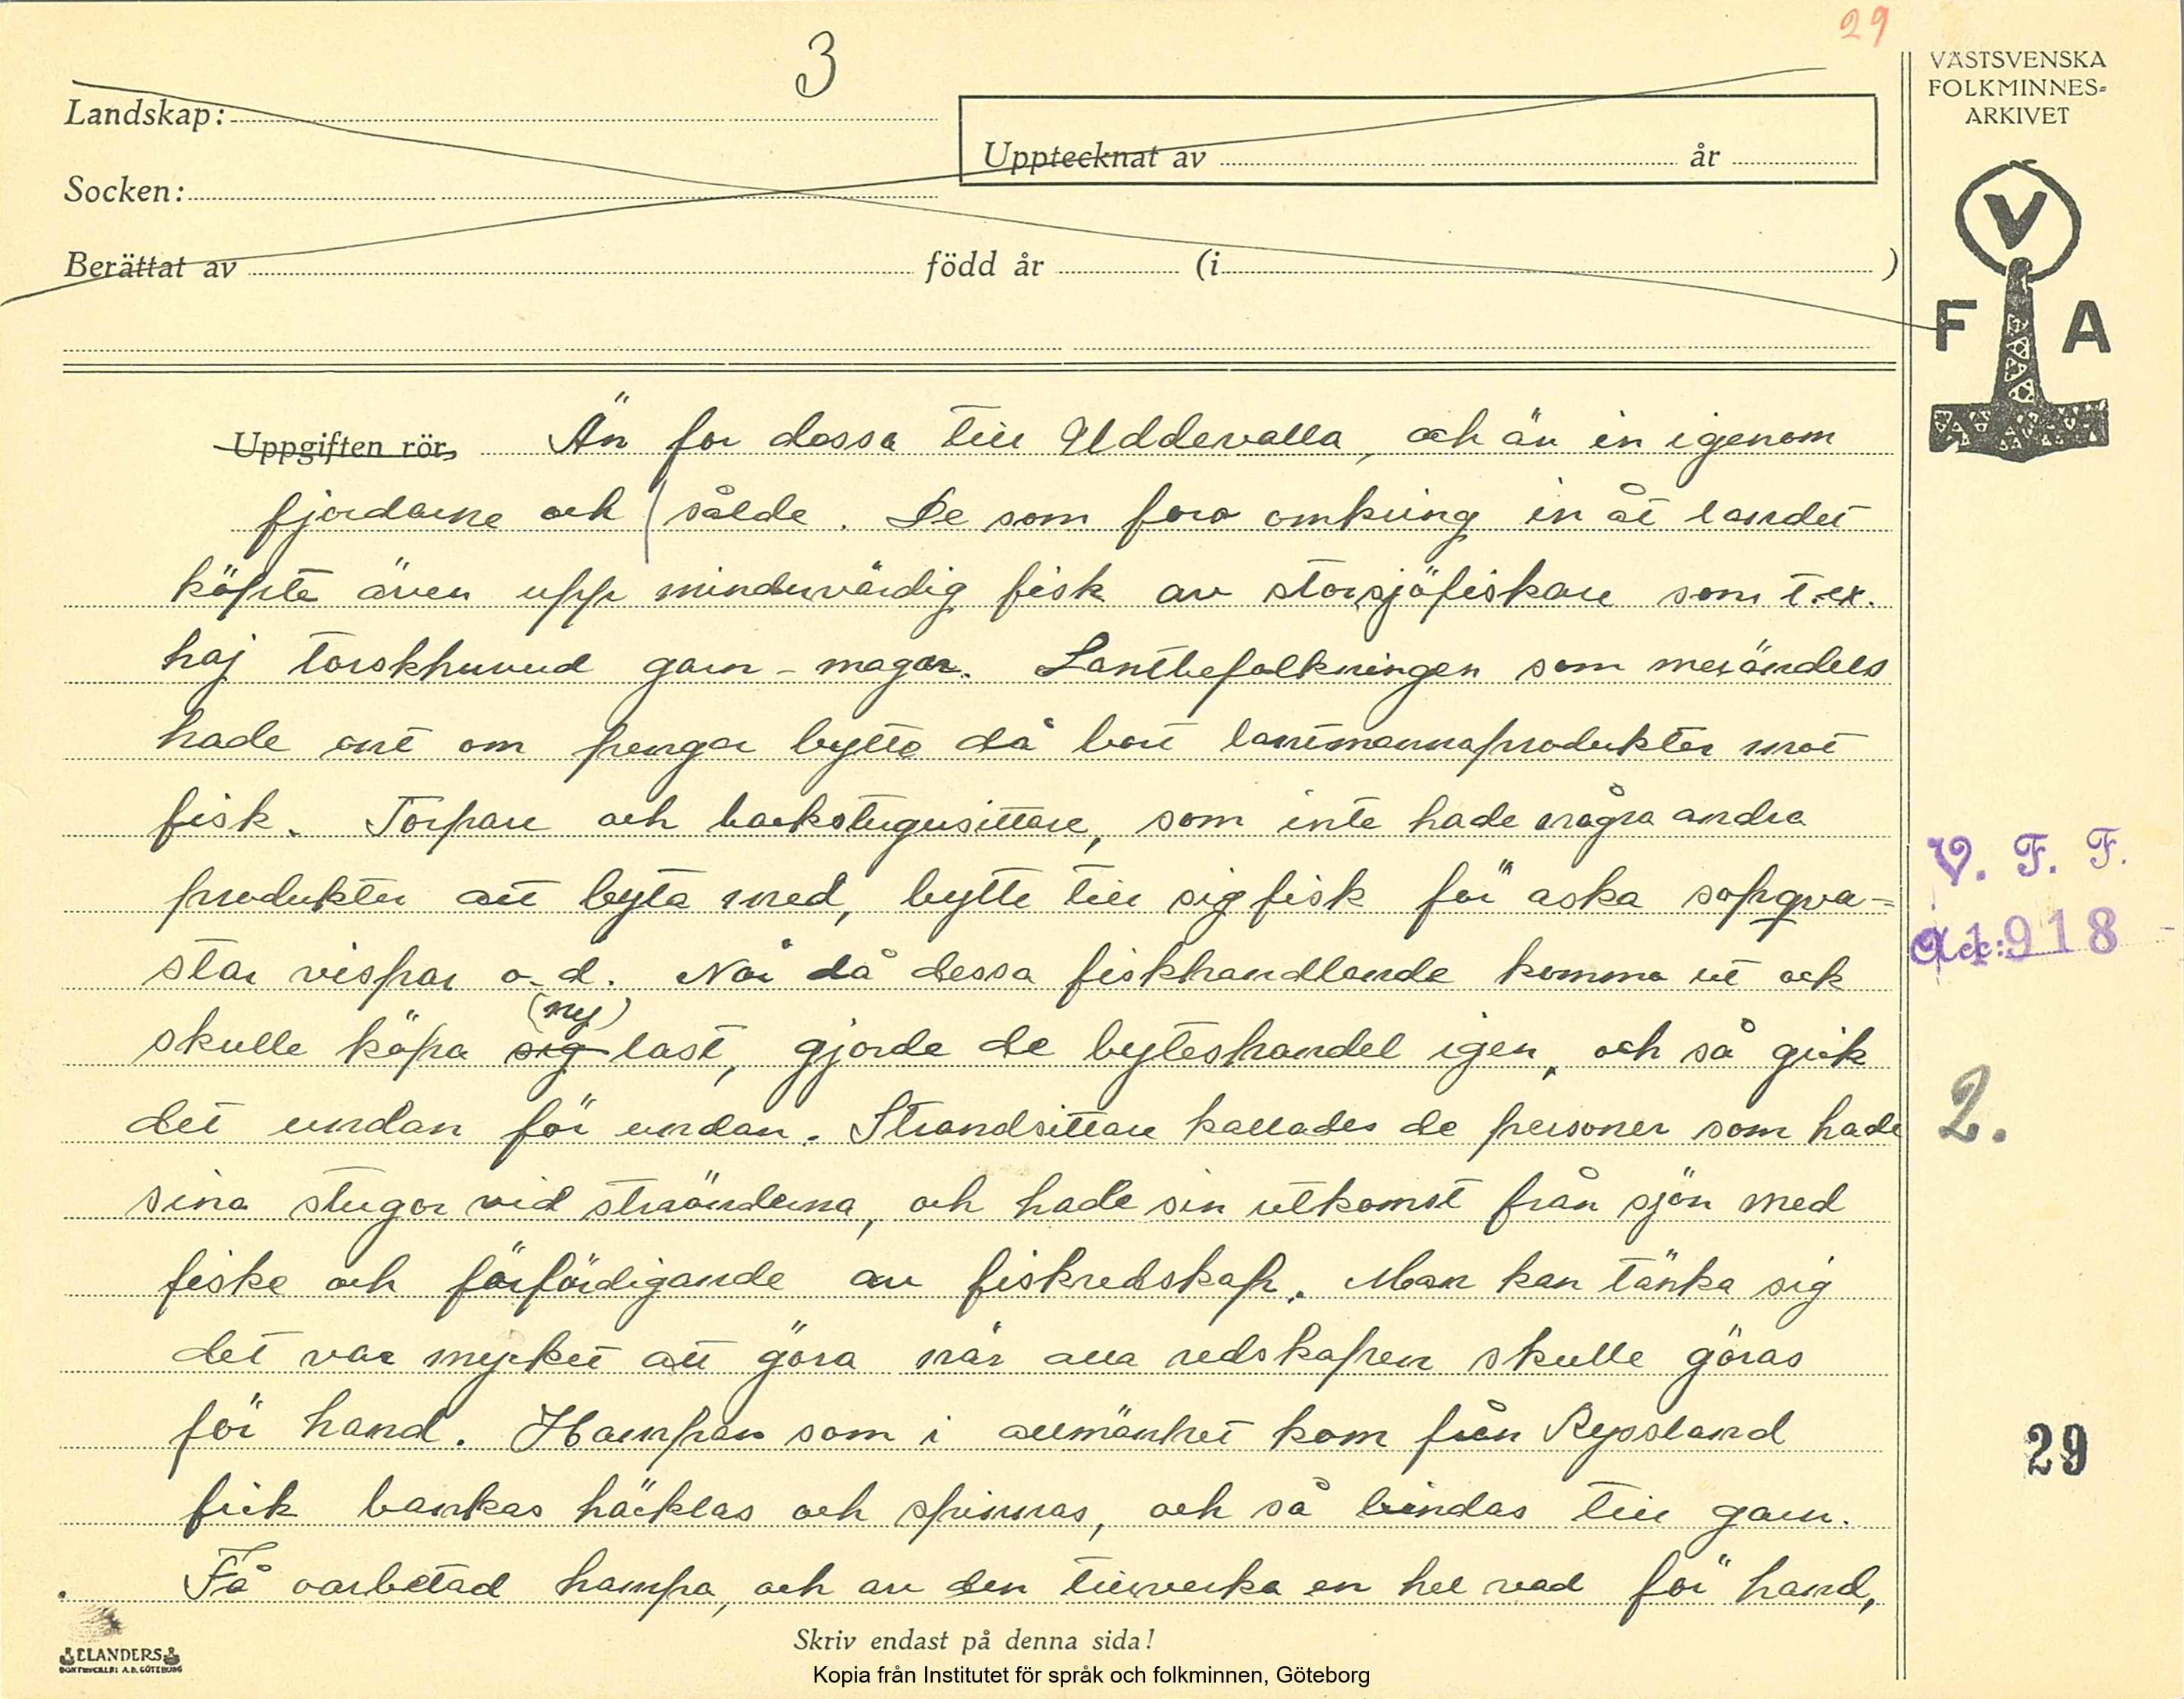 29
3
VÄSTSVENSKA
FOLKMINNES-
ARKIVET
Landskap:
Upptecknat av år
Socken:
Berättat av född år (i )
V
F A
Uppgiften rör, Än for dessa till Uddevalla, och än in igenom
fjordarne och sålde. De som foro omkring in åt landet
köpte även upp mindervärdig fisk av storsjöfiskare som t.ex.
haj torskhuvud garn-magar. Lantbefolkningen som merändels
hade ont om pengar bytte då bort lantmannaprodukter mot
fisk. Torpare och backstugusittare, som inte hade några andra
produkter att byta med, bytte till sig fisk för aska sopqva-
star vispar o.d. När då dessa fiskhandlande komma ut och
(ny)
skulle köpa sig last, gjorde de byteshandel igen, och så gick
det undan för undan. Strandsittare kallades de personer som hade
sina stugor vid stränderna, och hade sin utkomst från sjön med
fiske och förfärdigande av fiskredskap. Man kan tänka sig
det var mycket att göra när alla redskapen skulle göras
för hand. Hampan som i allmänhet kom från Ryssland
fick bankas häcklas och spinnas, och så bindas till garn.
Få oarbetad hampa, och av den tillverka en hel vad för hand,
V. F. F.
Acc: 1918
2.
29
Skriv endast på denna sida!
ELANDERS
BOKTRYCKERI A.B. GÖTEBORG
Kopia från Institutet för språk och folkminnen, Göteborg